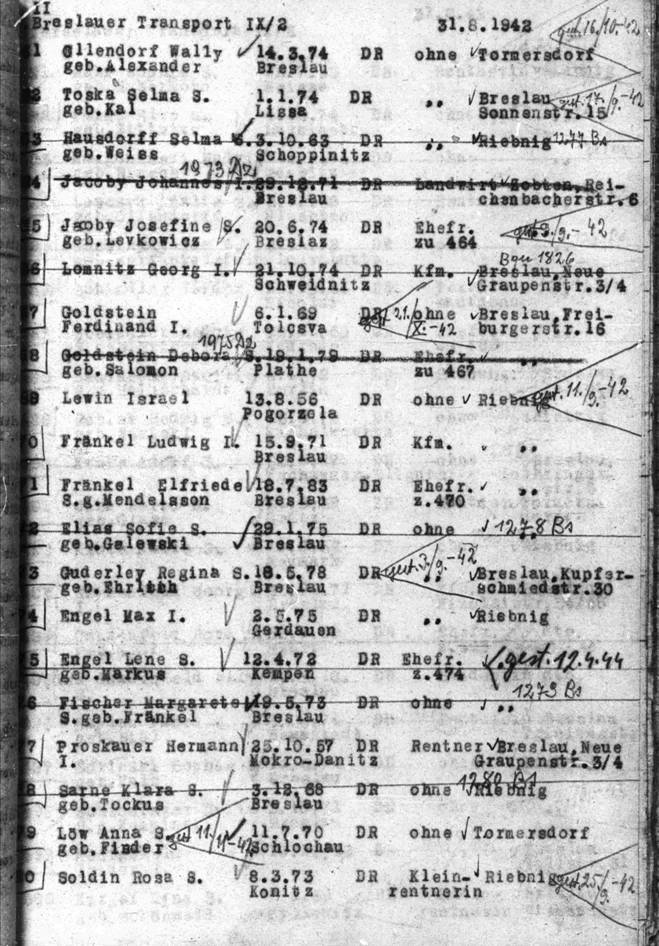 II
Breslauer Transport IX/2 31.8.1942 gest. 16/10.-42
1 Ollendorf Wally 14.3.74 DR ohne Tormersdorf
geb.Alexander Breslau
2 Toska Selma S. 1.1.74 DR ,, Breslau gest. 17./9.-42
geb.Kal Lissa Sonnenstr.15
3 Hausdorff Selma S. 3.10.63 DR ,, Riebnig 1277 Bs
geb.Weiss Schoppinitz
1973 Dz
4 Jacoby Johannes I. 29.12.71 DR Landwirt Zobten,Rei-
Breslau chenbacherstr.6
5 Jacoby Josefine S. 20.6.74 DR Ehefr. /9.-42
geb.Levkowicz Breslaz zu 464
1826
6 Lomnitz Georg I. 21.10.74 DR Kfm. Breslau,Neue
Schweidnitz Graupenstr.3/4
7 Goldstein 6.1.69 DR gest. 21./X.-42 ohne Breslau,Frei-
Ferdinand I. Tolcsva burgerstr.16
1975 Dz
8 Goldstein Debora S. 19.1.79 DR Ehefr. ,,
geb.Salomon Plathe zu 467
9 Lewin Israel 13.8.56 DR ohne Riebnig gest. 11./9.-42
Pogorzela
0 Fränkel Ludwig I. 15.9.71 DR Kfm. ,,
Breslau
1 Fränkel Elfriede 18.7.83 DR Ehefr. ,,
S.g.Mendelsson Breslau z.470
2 Elias Sofie S. 29.1.75 DR ohne ,, 1278 Bs
geb.Galewski Breslau
3 Guderley Regina S. 18.5.78 DR gest. 3./9.-42 ,, Breslau,Kupfer-
geb.Ehrlich Breslau schmiedstr.30
4 Engel Max I. 2.5.75 DR ,, Riebnig
Gerdauen
5 Engel Lene S. 12.4.72 DR Ehefr. ,, gest. 12.4.44
geb.Markus Kempen z.474
1279 Bs
6 Fischer Margarete 19.5.73 DR ohne ,,
S.geb.Fränkel Breslau
7 Proskauer Hermann 25.10.57 DR Rentner Breslau,Neue
I. Mokro-Danitz Graupenstr.3/4
1280 Bs
8 Sarne Klara S. 3.12.68 DR ohne Riebnig
geb.Tockus Breslau
9 Löw Anna S. gest. 11./11-42 11.7.70 DR ohne Tormersdorf
geb.Finder Schlochau
0 Soldin Rosa S. 8.3.73 DR Klein- Riebnig gest. 25/9.-42
Konitz rentnerin